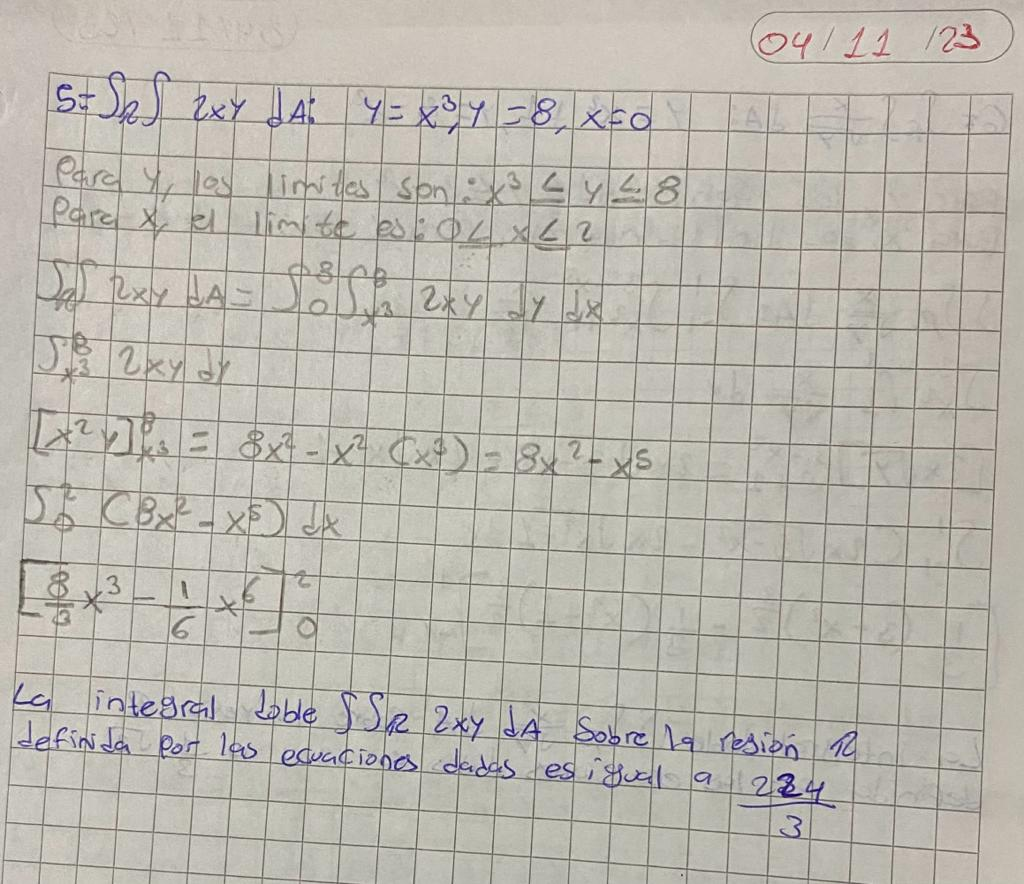 04/11/23
5= ∫R∫ 2xy dA: y = x³, y = 8, x=0
Para y, los limites son: x³ ≤ y ≤ 8
Para x, el limite es: 0 ≤ x ≤ 2
∫R∫ 2xy dA = ∫₀⁸ ∫ₓ³⁸ 2xy dy dx
∫ₓ³⁸ 2xy dy
[x²y]ₓ³⁸ = 8x² - x² (x³) = 8x² - x⁵
∫₀² (8x² - x⁵) dx
[8/3 x³ - 1/6 x⁶]₀²
La integral doble ∫∫R 2xy dA Sobre la region R
definida por las ecuaciones dadas es igual a 224/3